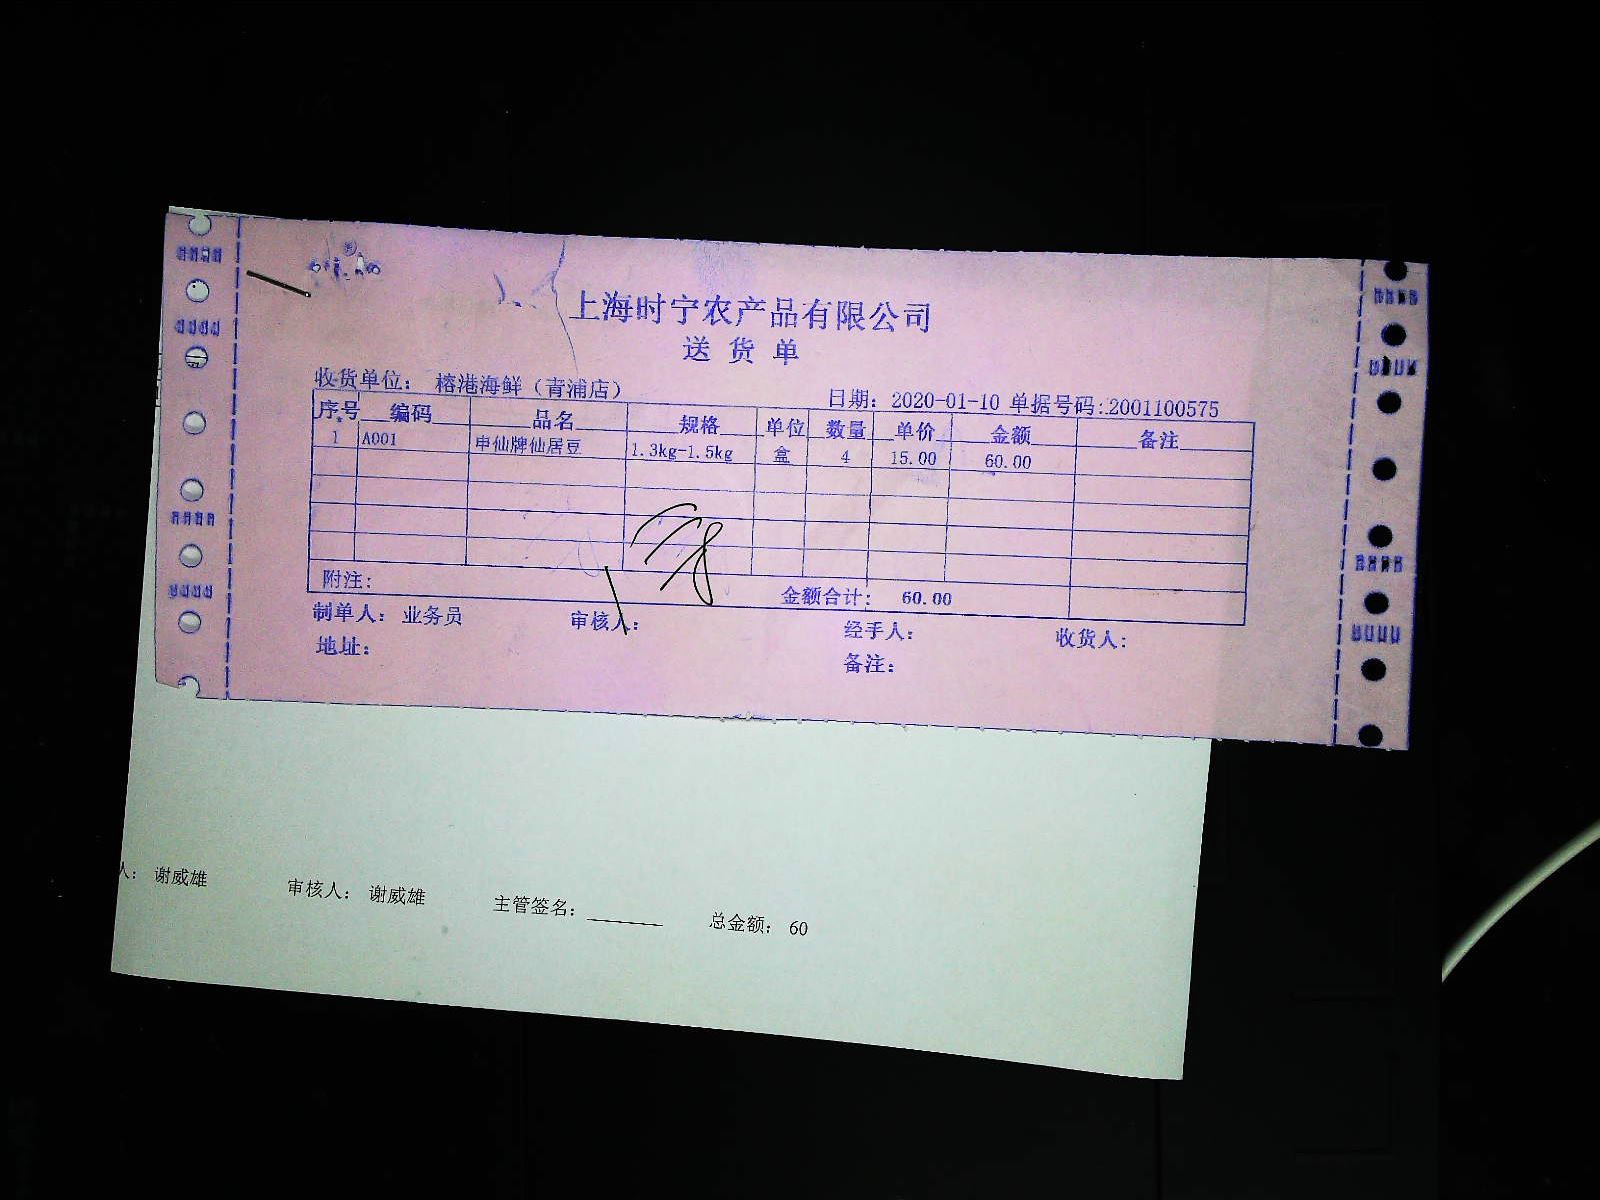 上海时宁农产品有限公司
送货单
收货单位： 榕港海鲜（青浦店） 日期：2020-01-10 单据号码:2001100575
序号 编码 品名 规格 单位 数量 单价 金额 备注
1 A001 申仙牌仙居豆 1.3kg-1.5kg 盒 4 15.00 60.00
附注： 金额合计： 60.00
制单人：业务员 审核人： 经手人： 收货人：
地址： 备注：
人： 谢威雄 审核人： 谢威雄 主管签名： 总金额： 60